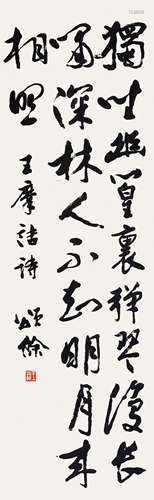 獨坐幽篁裏彈琴復長
嘯深林人不知明月来
相照
王摩詰詩
頌餘